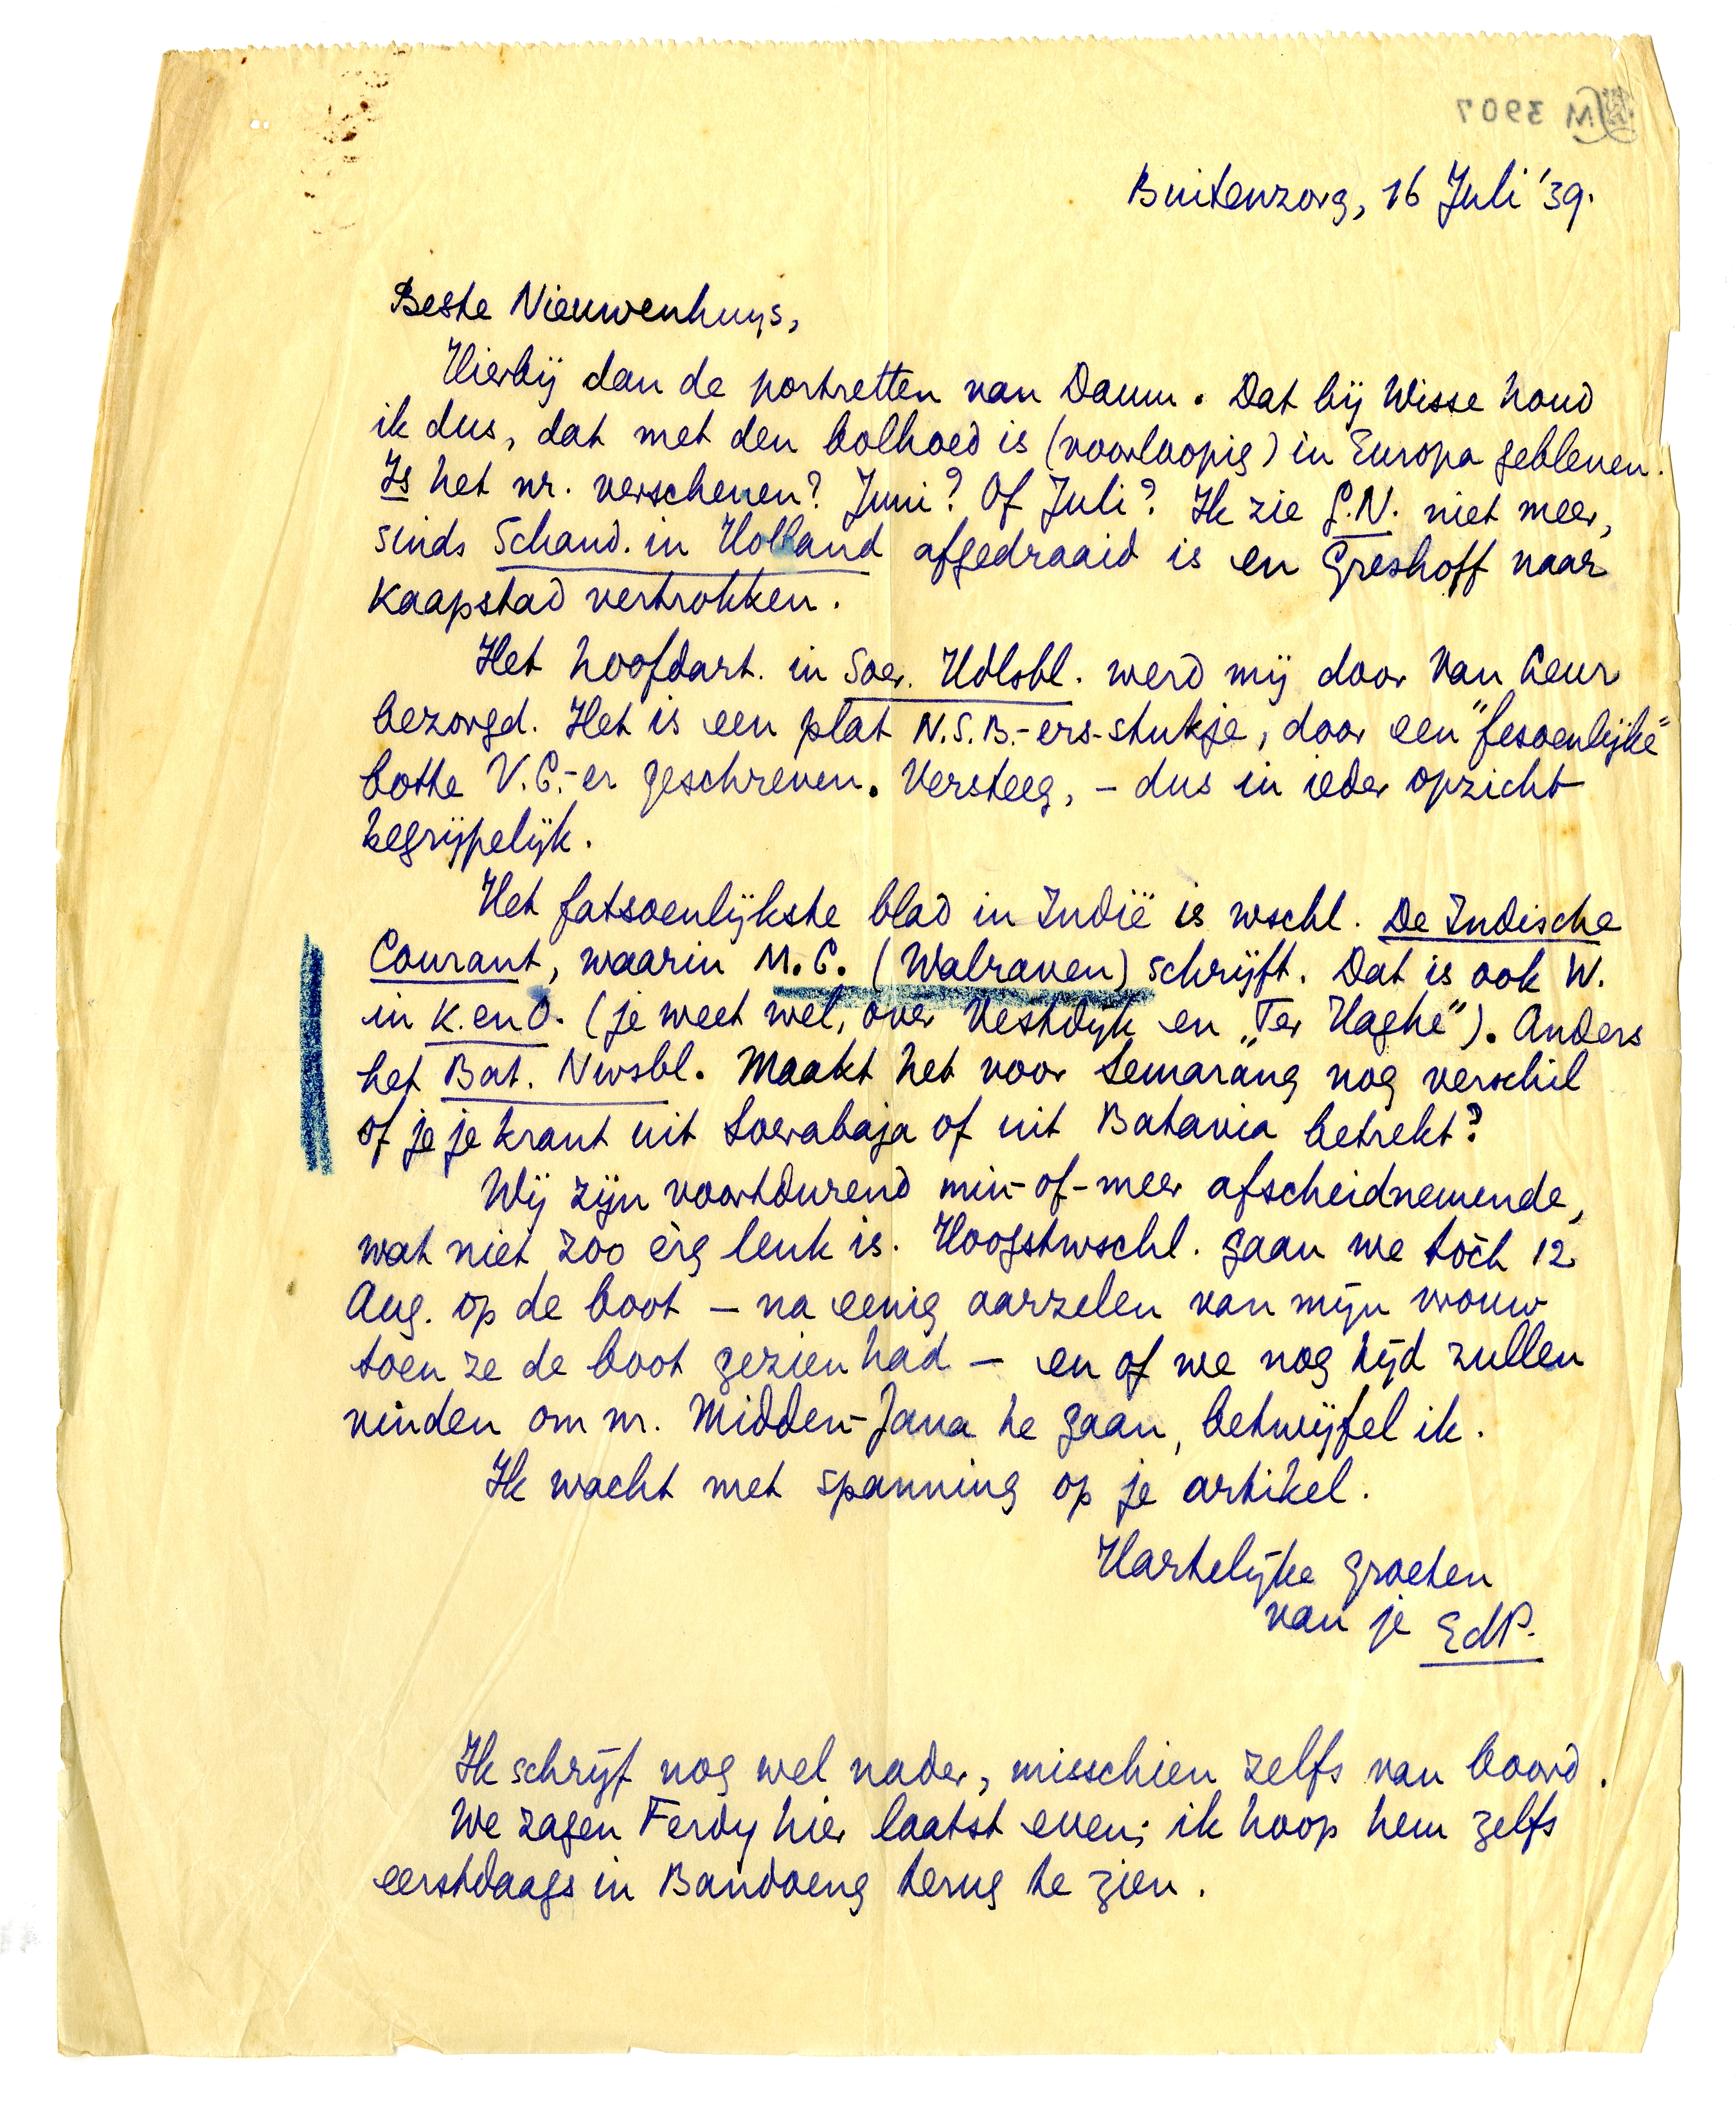 LM 3907
Buitenzorg, 16 Juli '39.
Beste Nieuwenhuys,
Hierbij dan de portretten van Daum. Dat bij Wisse houd
ik dus, dat met den bolhoed is (voorloopig) in Europa gebleven.
Is het nr. verschenen? Juni? Of Juli? Ik zie G.N. niet meer,
sinds Schand. in Holland afgedraaid is en Greshoff naar
Kaapstad vertrokken.
Het hoofdart. in Soer. Hdlsbl. werd mij door Van Leur
bezorgd. Het is een plat N.S.B.-ers-stukje, door een "fesoenlijke"
botte V.C.-er geschreven. Versteeg, – dus in ieder opzicht
begrijpelijk.
Het fatsoenlijkste blad in Indië is wschl. De Indische
Courant, waarin M.C. (Walraven) schrijft. Dat is ook W.
in K. en O. (je weet wel, over Vestdijk en „Ter Haghe"). Anders
het Bat. Nwsbl. Maakt het voor Semarang nog verschil
of je je krant uit Soerabaja of uit Batavia betrekt?
Wij zijn voortdurend min-of-meer afscheidnemende,
wat niet zoo èrg leuk is. Hoogstwschl. gaan we tòch 12
Aug. op de boot – na eenig aarzelen van mijn vrouw
toen ze de boot gezien had – en of we nog tijd zullen
vinden om nr. Midden-Java te gaan, betwijfel ik.
Ik wacht met spanning op je artikel.
Hartelijke groeten
van je EdP.
Ik schrijf nog wel nader, misschien zelfs van boord.
We zagen Ferdy hier laatst even; ik hoop hem zelfs
eerstdaags in Bandoeng terug te zien.